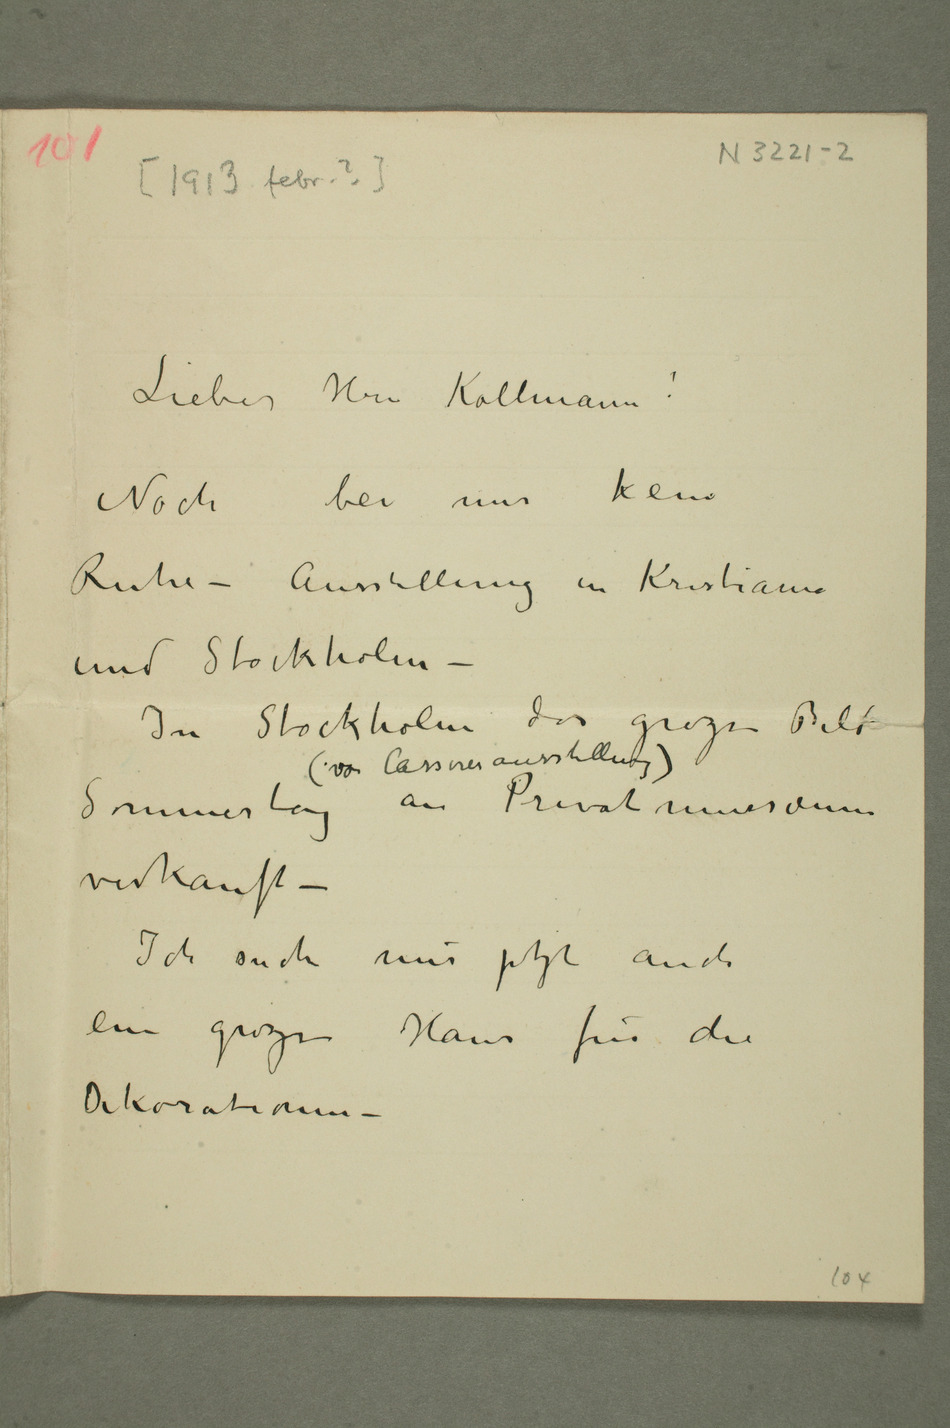 101
[1913 febr.?]
N 3221-2
Lieber Herr Kollmann!
Noch bei mir keine
Ruhe – Ausstellung in Kristiania
und Stockholm –
In Stockholm das grosze Bild
(von Cassirerausstellung)
Sommertag an Privatmuseum
verkauft –
Ich suche mir jetzt auch
ein groszes Haus für die
Dekorationen –
104